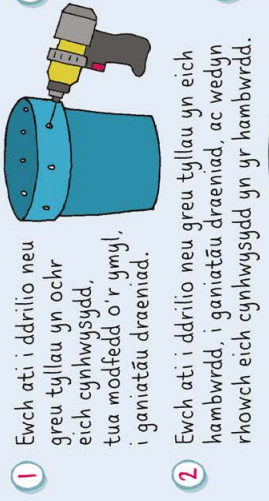 1
Ewch ati i ddrilio neu
greu tyllau yn ochr
eich cynhwysydd,
tua modfedd o'r ymyl,
i ganiatáu draeniad.
2
Ewch ati i ddrilio neu greu tyllau yn eich
hambwrdd, i ganiatáu draeniad, ac wedyn
rhowch eich cynhwysydd yn yr hambwrdd.